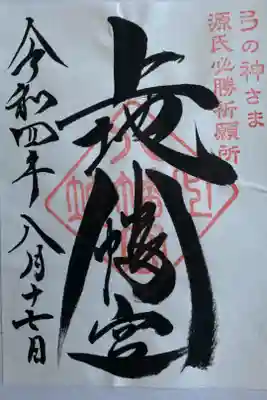 弓の神さま
源氏必勝祈願所
上地八幡宮
令和四年八月十七日